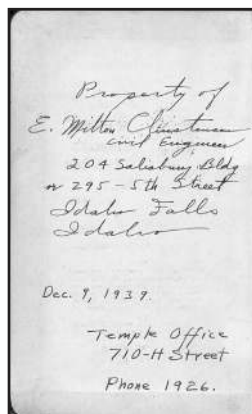 Property of
E. Milton Christensen
Civil Engineer
204 Salisbury Bldg
or 295 - 5th Street
Idaho Falls
Idaho
Dec. 9, 1939.
Temple Office
710-H Street
Phone 1926.